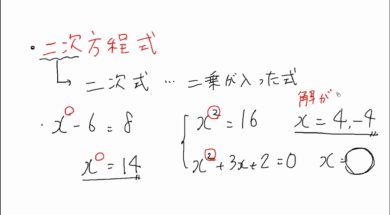 ・二次方程式
→ 二次式 … 二乗が入った式
・x - 6 = 8
x = 14
x² = 16
x² + 3x + 2 = 0
解が
x = 4, -4
x = ◯